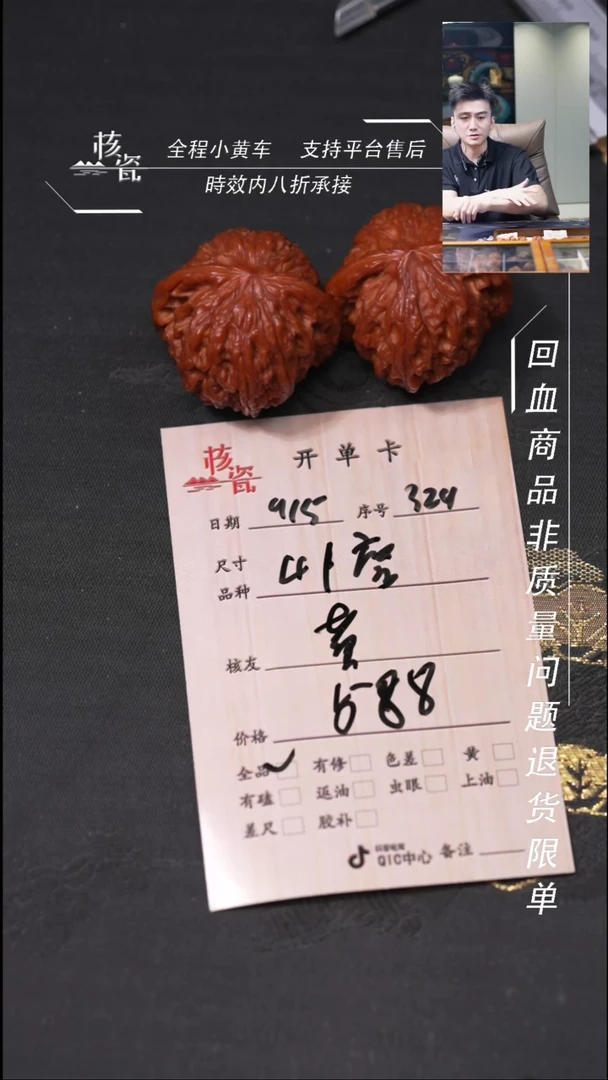 核瓷
全程小黄车 支持平台售后
時效内八折承接
回血商品非质量问题退货限单
核瓷 开单卡
日期 915 序号 324
尺寸
品种 41
核友 黄
价格 588
全品 有修 色差 黄
有磕 返油 虫眼 上油
差尺 胶补
抖音电商
QIC中心 备注